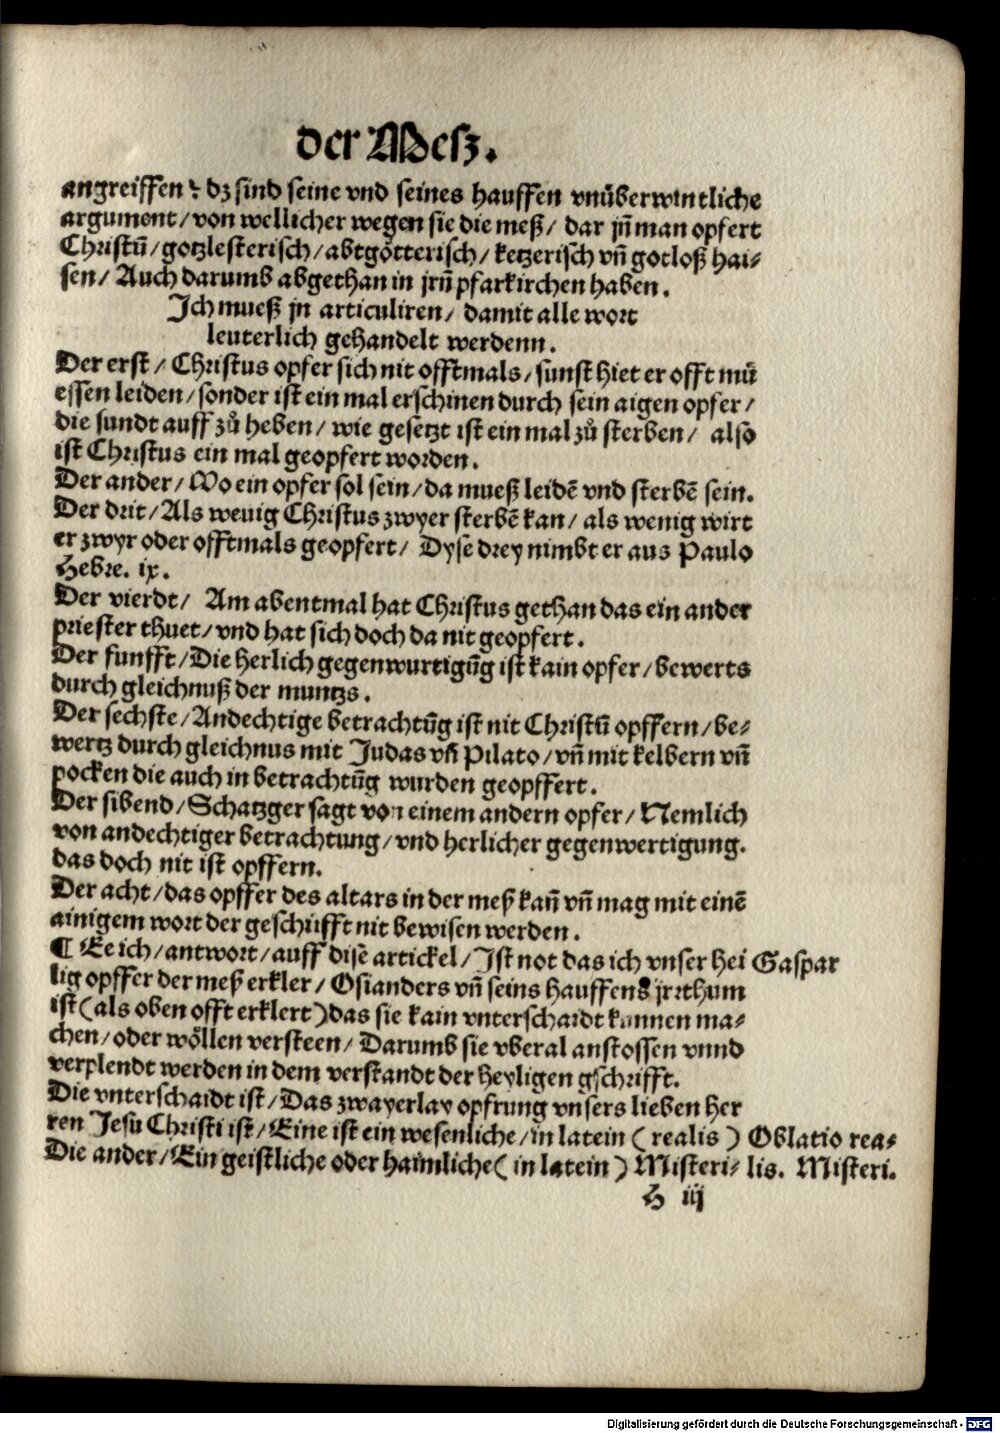 der Mesz.
angreiffen ꝛ dz sind seine vnd seines hauffen vnüberwintliche
argument/ von wellicher wegen sie die meß/ dar jñ man opfert
Christū/ gotzlesterisch/ abtgötterisch/ ketzerisch vñ gotloß hai⸗
sen/ Auch darumb abgethan in jrñ pfarkirchen haben.
Ich mueß jn articuliren/ damit alle wort
leuterlich gehandelt werdenn.
Der erst/ Christus opfer sich nit offtmals/ sunst hiet er offt mü
essen leiden/ sonder ist ein mal erschinen durch sein aigen opfer/
die sundt auff zů heben/ wie gesetzt ist ein mal zů sterben/ also
ist Christus ein mal geopfert worden.
Der ander/ Wo ein opfer sol sein/ da mueß leidē vnd sterbē sein.
Der drit/ Als wenig Christus zwyer sterbē kan/ als wenig wirt
er zwyr oder offtmals geopfert/ Dyse drey nimbt er aus Paulo
Hebre. ix.
Der vierdt/ Am abentmal hat Christus gethan das ein ander
priester thuet/ vnd hat sich doch da nit geopfert.
Der funfft/ Die herlich gegenwurtigūg ist kain opfer/ bewerts
durch gleichnuß der muntzs.
Der sechste/ Andechtige betrachtūg ist nit Christū opffern/ be⸗
wertz durch gleichnus mit Judas vñ Pilato/ vñ mit kelbern vñ
pocken die auch in betrachtūg wurden geopffert.
Der sibend/ Schatzger sagt von einem andern opfer/ Nemlich
von andechtiger betrachtung/ vnd herlicher gegenwertigung.
das doch nit ist opffern.
Der acht/ das opffer des altars in der meß kañ vñ mag mit einē
ainigem wort der geschrifft nit bewisen werden.
¶ Ee ich/ antwort/ auff disē artickel/ Ist not das ich vnser hei Gaspar
lig opffer der meß erkler/ Osianders vñ seins hauffens jrrthum
ist (als oben offt erklert) das sie kain vnterschaidt kunnen ma⸗
chen/ oder wöllen versteen/ Darumb sie vberal anstossen vnnd
verplendt werden in dem verstandt der heyligen gschrifft.
Die vnterschaidt ist/ Das zwayerlay opfrung vnsers lieben her
ren Jesu Christi ist/ Eine ist ein wesenliche/ in latein ( realis ) Oblatio rea⸗
Die ander/ Ein geistliche oder haimliche ( in latein ) Misteri⸗ lis. Misteri.
H iij
Digitalisierung gefördert durch die Deutsche Forschungsgemeinschaft - DFG